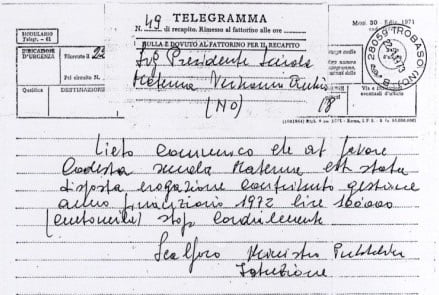 MODULARIO
Telegr. - 61
TELEGRAMMA
Mod. 30 Ediz. 1971
N. 49 di recapito. Rimesso al fattorino alle ore
INDICAZIONE D'URGENZA
Ricevuto il 23
NULLA È DOVUTO AL FATTORINO PER IL RECAPITO
28059 TROBASO
Pel circuito N.
Sig Presidente Scuola
Qualifica
DESTINAZIONE
Materna
(NO)
Via e indicazioni eventuali d'ufficio
Lieto comunico che at favore
Codesta scuola Materna est stata
disposta erogazione contributo gestione
anno finanziario 1972 lire
stop cordialmente
Scalfaro Ministro Pubblica
Istruzione